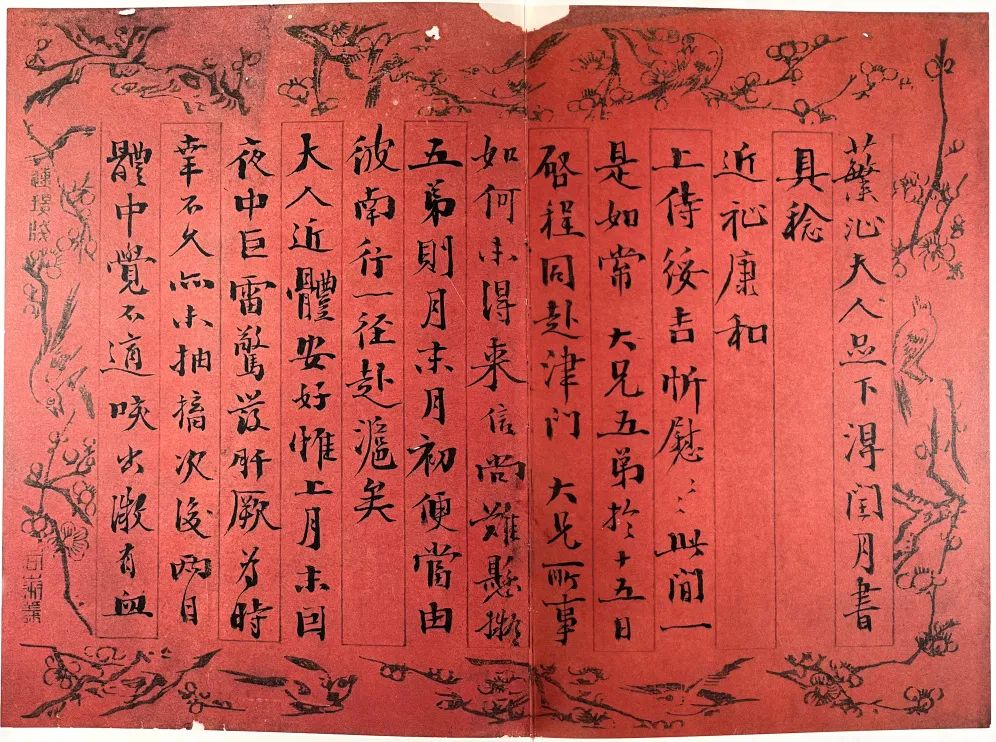 蘩沁夫人足下淂閏月書
具稔
近祉康和
上侍綏吉忻慰〻此間一
是如常 大兄五弟於十五日
啓程同赴津門 大兄所事
如何未得來信尚難懸擬
五弟則月末月初便當由
彼南行一径赴滬矣
大人近體安好惟上月末因
夜中巨雷驚發肝厥为時
幸不久亦未抽搐次後兩日
體中覺不適咳出漱有血